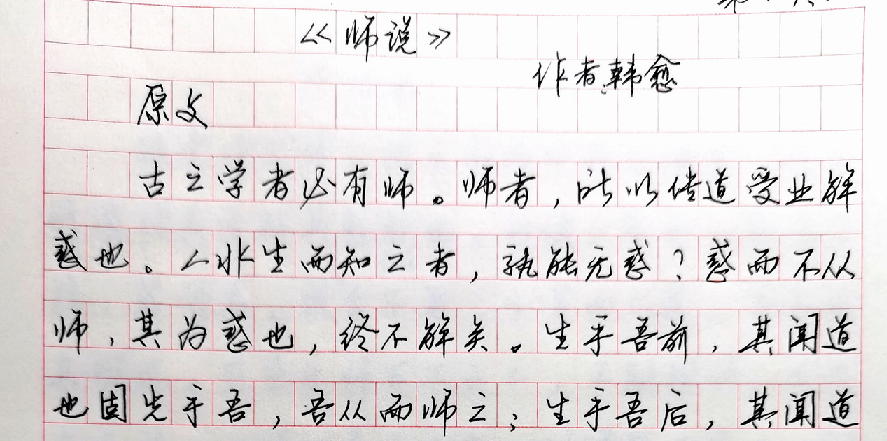 《师说》
作者韩愈
原文
古之学者必有师。师者,所以传道受业解
惑也。人非生而知之者,孰能无惑?惑而不从
师,其为惑也,终不解矣。生乎吾前,其闻道
也固先乎吾,吾从而师之;生乎吾后,其闻道